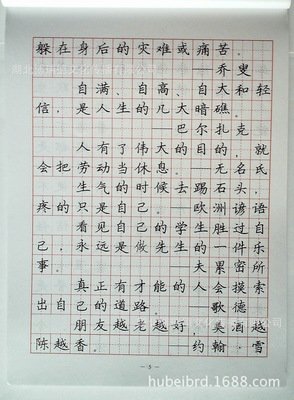 躲在身后的灾难或痛苦。
——乔叟
自满、自高、自大和轻
信，是人生的几大暗礁。
——巴尔扎克
人有了伟大的目的，就
会把劳动当休息。——无名氏
生气的时候去踢石头，
疼的只是自己。——欧洲谚语
看见自己的学生胜过自
己，永远是做先生的一件乐
事。——夫累密所
真正有才能的人会摸索
出自己的道路。——歌德
朋友越老越好，美酒越
陈越香。——约翰·雪
- 5 -
hubeibrd.1688.com